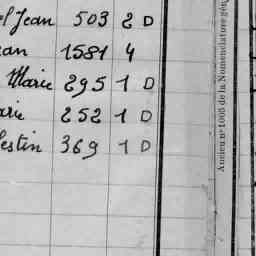 Jean 503 2 D
1581 4
Marie 295 1 D
252 1 D
369 1 D
Ancien n° 1005 de la Nomenclature